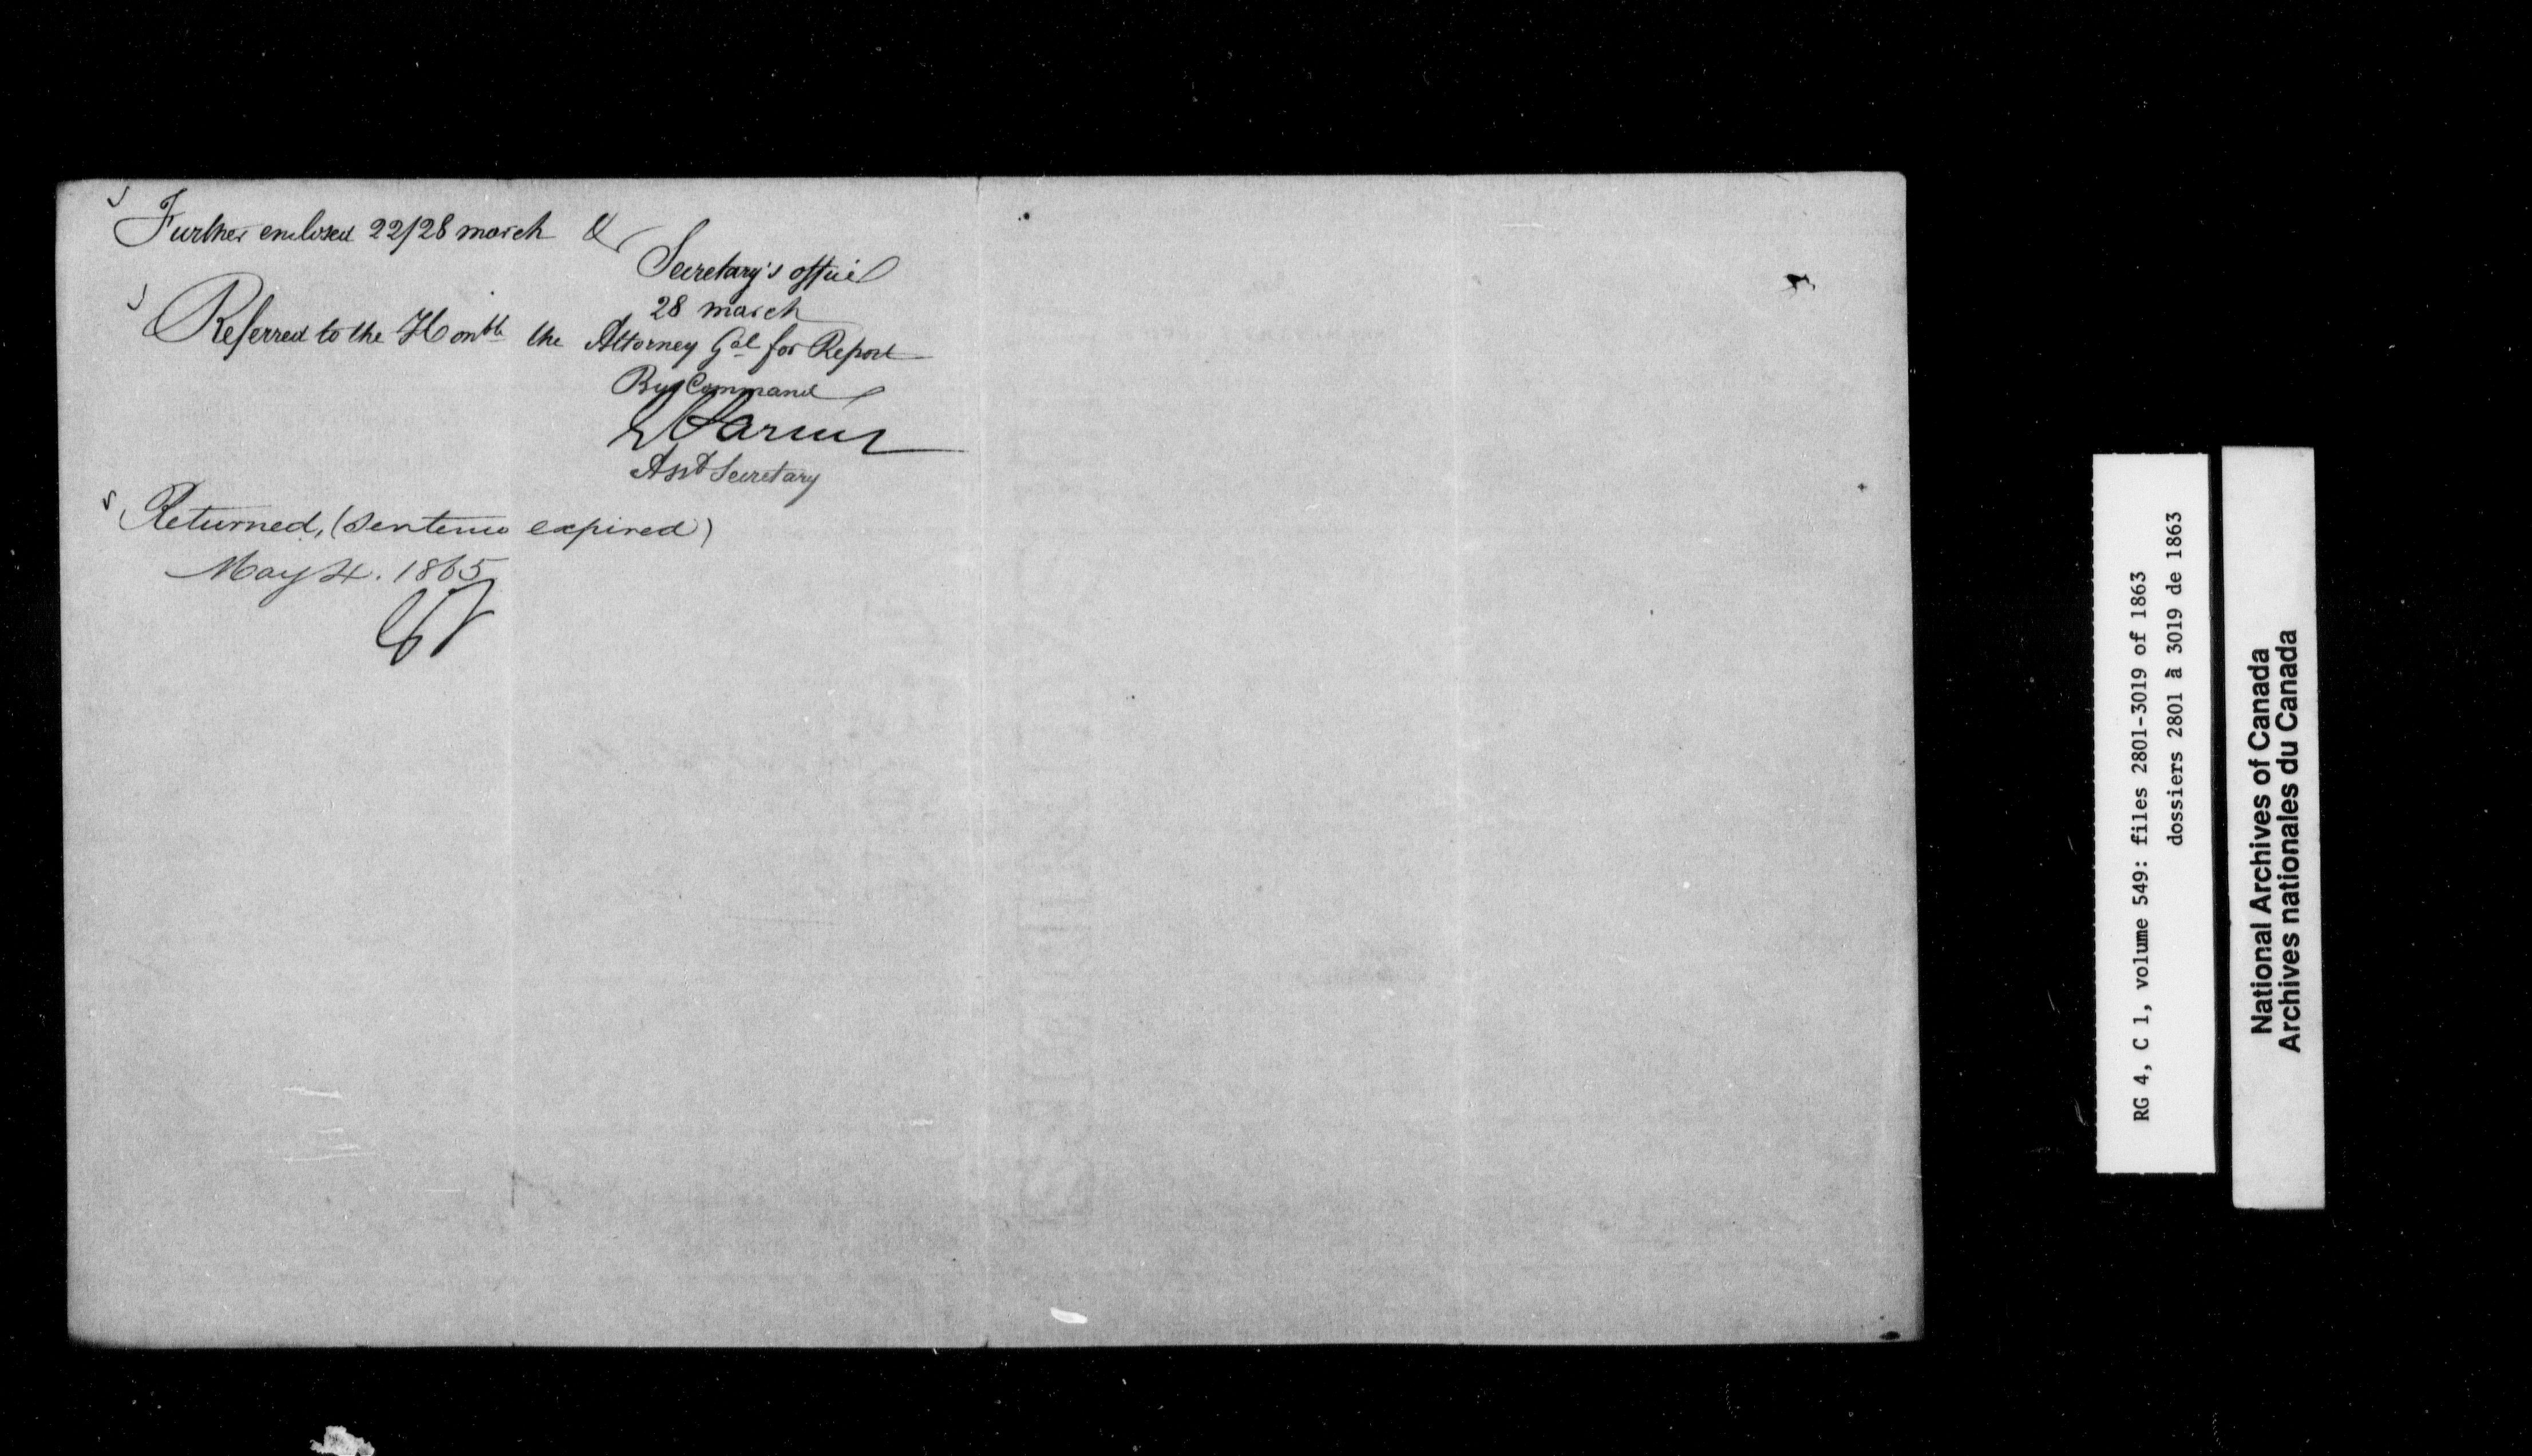 Further enclosed 22/28 march &
Secretary's office
28 march
Referred to the Honble the Attorney Gal for Report
By Command
E Parent
Asst Secretary
Returned, (sentence expired)
May 4. 1865
RG 4, C 1, volume 549: files 2801-3019 of 1863
dossiers 2801 à 3019 de 1863
National Archives of Canada
Archives nationales du Canada